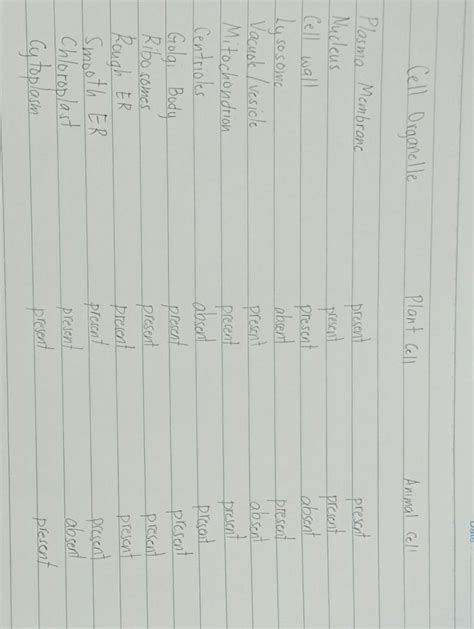 Cell Organelle Plant Cell Animal Cell
Plasma Membrane present present
Nucleus present present
Cell wall present absent
Lysosome absent present
Vacuole/vesicle present absent
Mitochondrion present present
Centrioles absent present
Golgi Body present present
Ribosomes present present
Rough ER present present
Smooth ER present present
Chloroplast present absent
Cytoplasm present present